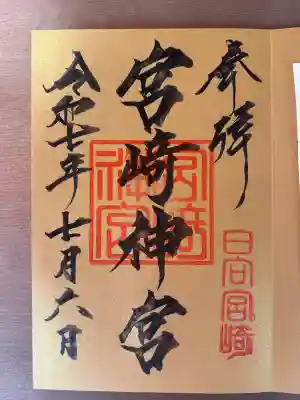 奉拝
日向宮崎
宮崎神宮
令和七年七月六日